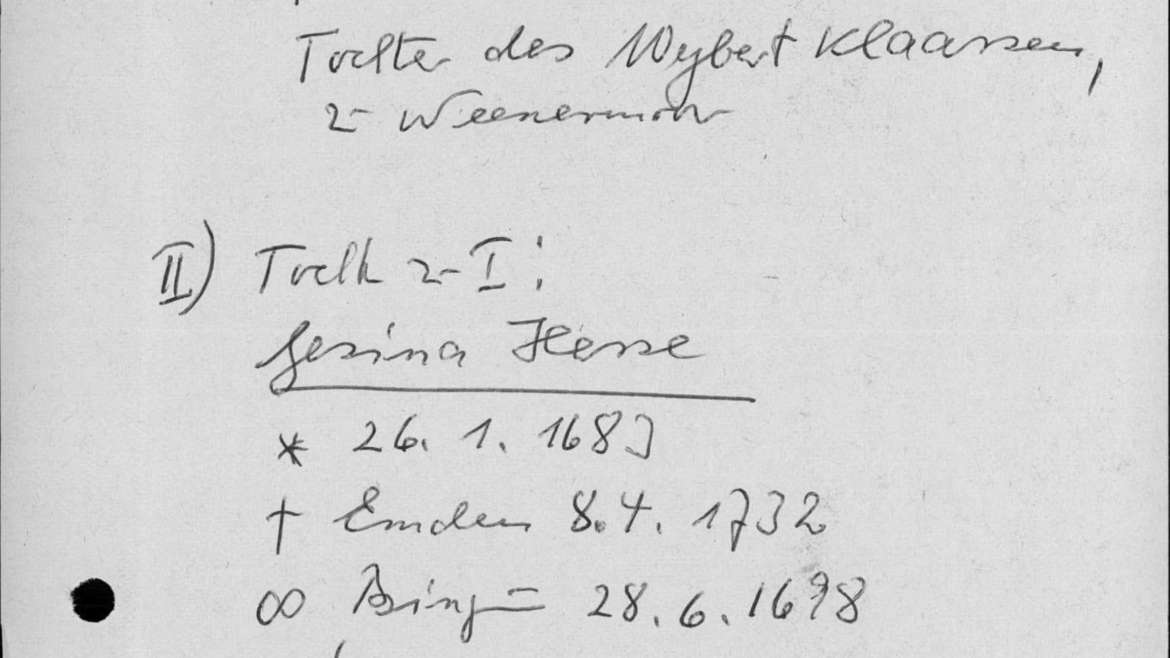 Tochter des Wybert Klaassen,
z- Weenermoor
II) Tocht z- I:
Gesina Hesse
* 26. 1. 1683
† Emden 8.4. 1732
∞ 28. 6. 1698